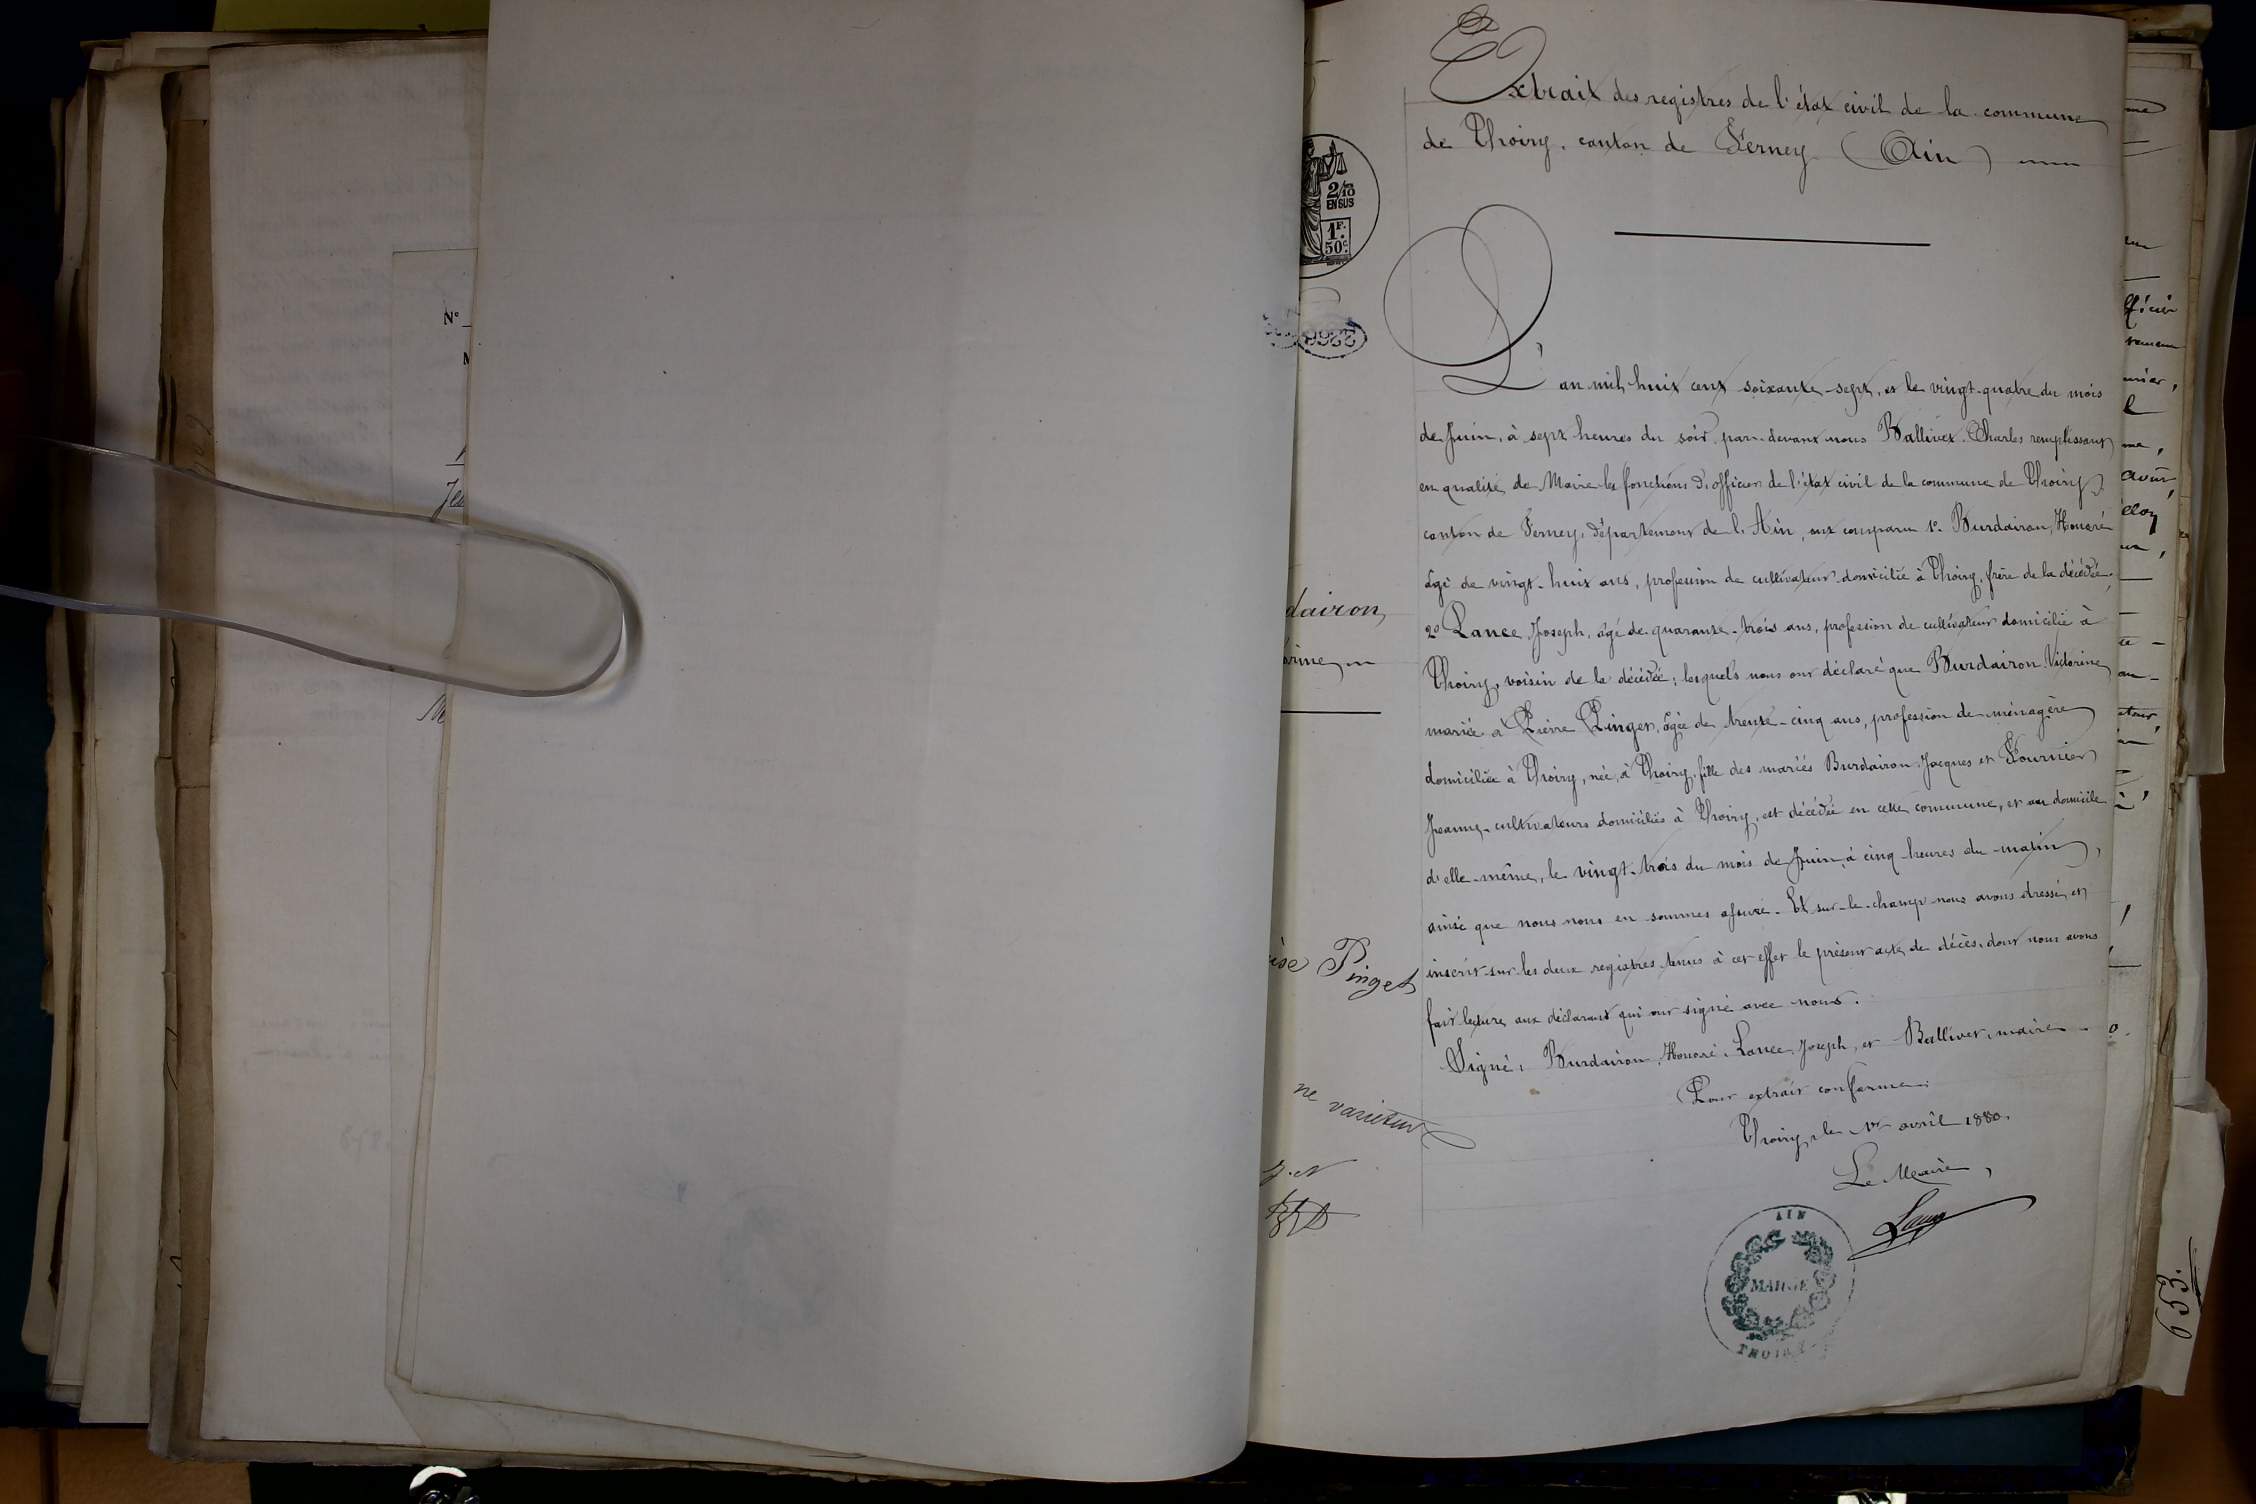 Extrait des registres de l'état civil de la commune
de Thoiry, canton de Ferney (Ain)
2/10
EN SUS
1F.
50c.
L'an mil huit cent soixante-sept, et le vingt-quatre du mois
de Juin, à sept heures du soir, par-devant nous Ballivet Charles remplissant
en qualité de Maire les fonctions d'officier de l'état civil de la commune de Thoiry
canton de Ferney, département de l'Ain, ont comparu 1º Burdairon, Honoré
âgé de vingt-huit ans, profession de cultivateur domicilié à Thoiry, frère de la décédée.
2º Lance, Joseph, âgé de quarante-trois ans, profession de cultivateur domicilié à
Thoiry, voisin de la décédée; lesquels nous ont déclaré que Burdairon Victorine
mariée à Pierre Pinget, âgée de trente-cinq ans, profession de ménagère
domiciliée à Thoiry, née à Thoiry, fille des mariés Burdairon Jacques et Fournier
Jeanne, cultivateurs domiciliés à Thoiry, est décédée en cette commune, et au domicile
d'elle-même, le vingt-trois du mois de Juin, à cinq heures du matin,
ainsi que nous nous en sommes assuré. Et sur-le-champ nous avons dressé et
inscrit sur les deux registres tenus à cet effet le présent acte de décès, dont nous avons
fait lecture aux déclarants qui ont signé avec nous.
Signé: Burdairon, Honoré, Lance, Joseph, et Ballivet, maire.
Pour extrait conforme:
Thoiry, le 1er avril 1880.
Le Maire,
AIN
MAIRIE
THOIRY
dairon
rine
Pinget
ne varietur
Nº
653.